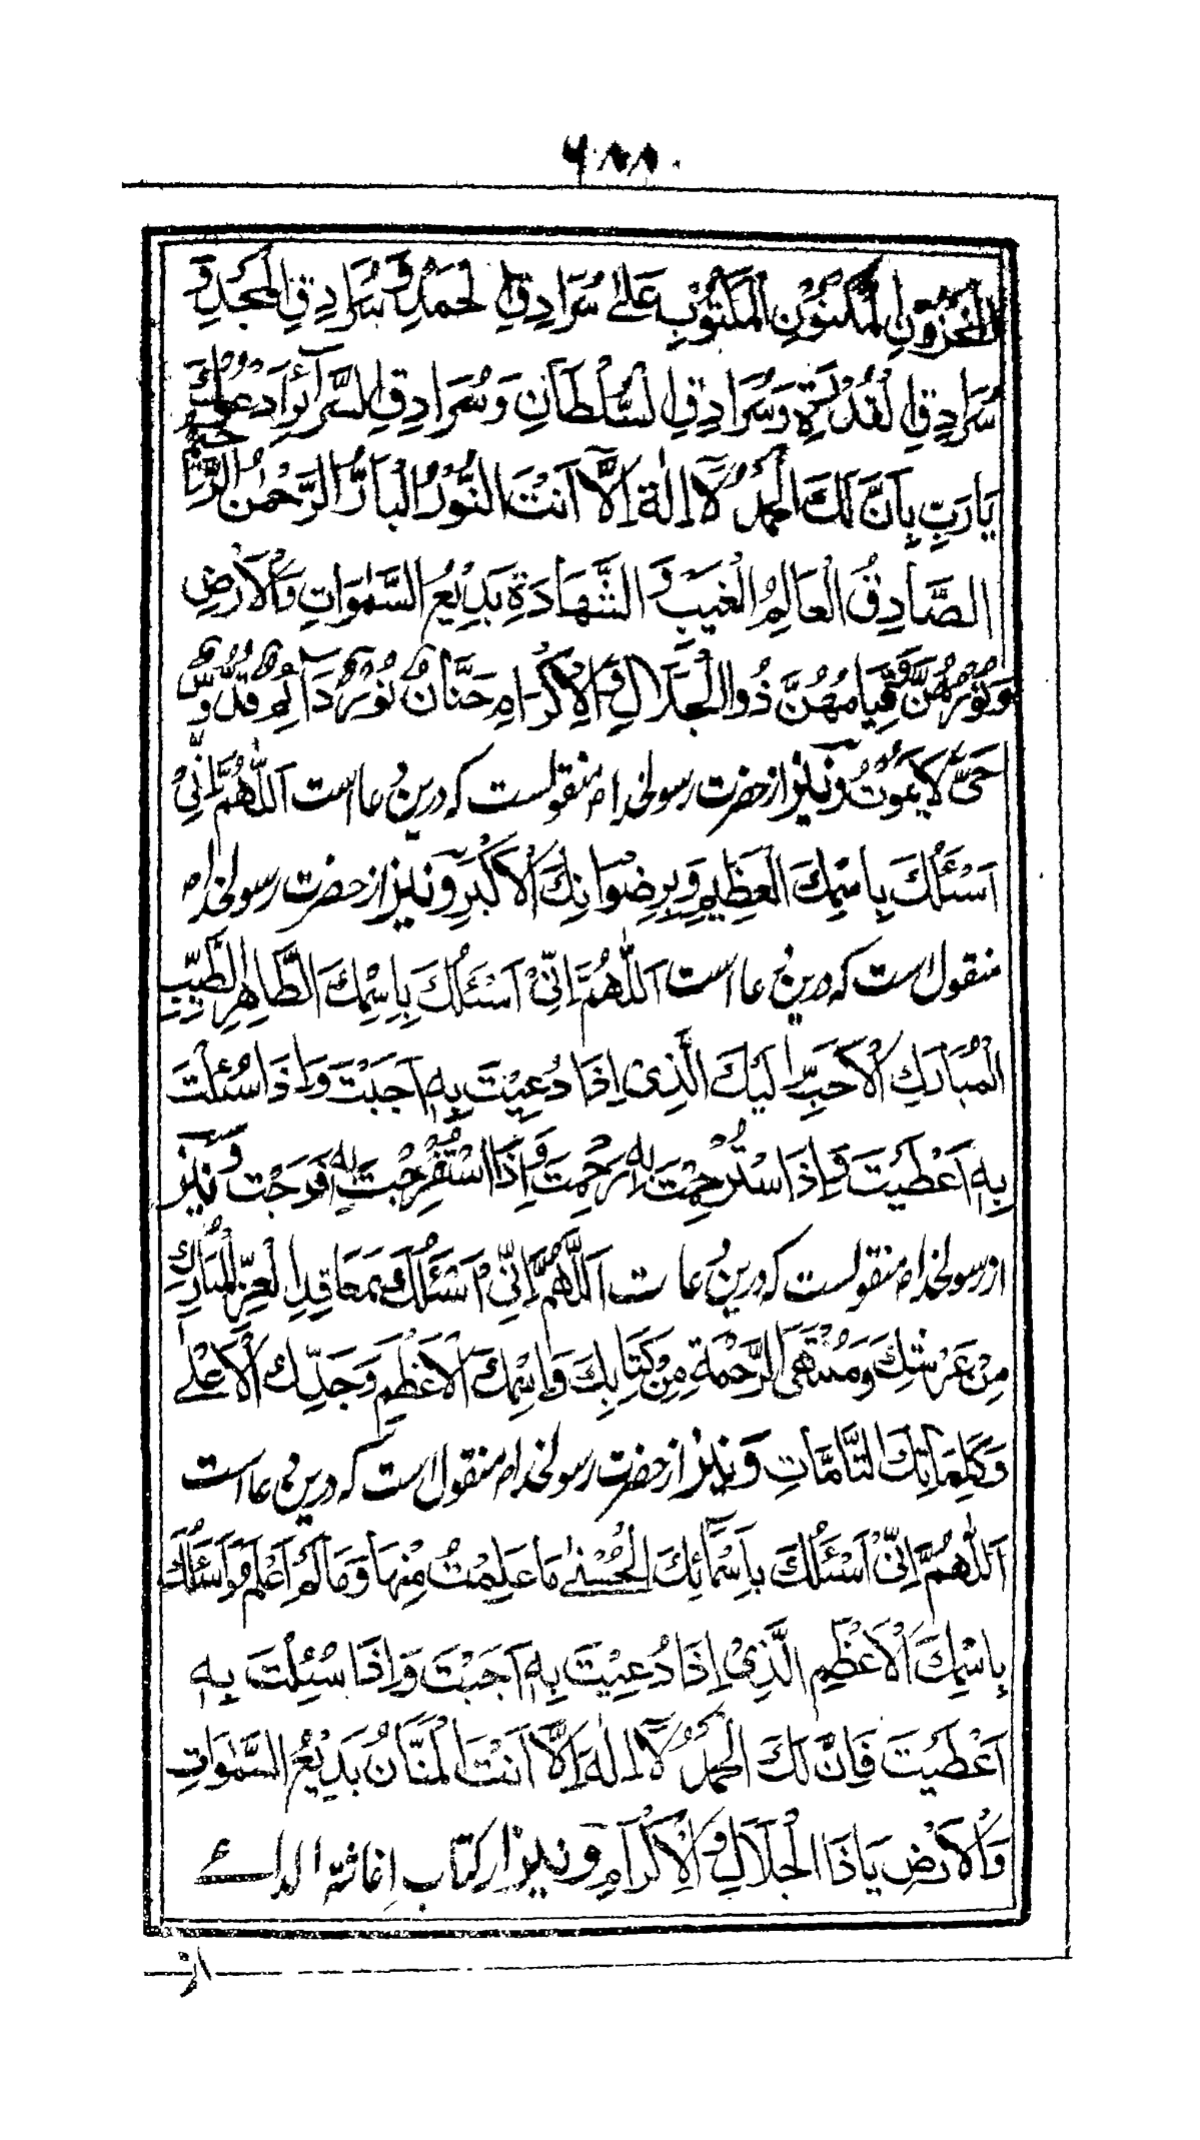 ۶۸۸
المخزون المکنون المکتوب علی سرادق الحمد و سرادق المجد و
سُرَادِقِ القُدْرَةِ وَسُرَادِقِ السُّلْطَانِ وَسُرَادِقِ السَّرَآئِرِ اَدْعُوكَ
يَارَبِّ بِاَنَّ لَكَ الْحَمْدُ لَآ اِلٰهَ اِلَّآ اَنْتَ النُّوْرُ الْبَآرُّ الرَّحْمٰنُ الرَّحِيْمُ
الصَّادِقُ الْعَالِمُ الْغَيْبِ وَ الشَّهَادَةِ بَدِيْعُ السَّمٰوَاتِ وَالْاَرْضِ
وَنُوْرُهُنَّ وَقِيَامُهُنَّ ذُوالْجَلَالِ وَالْاِكْرَامِ حَنَّانٌ نُوْرٌ دَآئِمٌ قُدُّوْسٌ
حَىٌّ لَا يَمُوْتُ وَنیز از حضرت رسولخدا ص منقولست که درین دعا است اَللّٰهُمَّ اِنِّىْ
اَسْئَلُكَ بِاسْمِكَ الْعَظِيْمِ وَبِرِضْوَانِكَ الْاَكْبَرِ وَ نیز از حضرت رسولخدا ص
منقول است که درین دعا است اَللّٰهُمَّ اِنِّىْ اَسْئَلُكَ بِاِسْمِكَ الطَّاهِرِ الطَّيِّبِ
الْمُبَارَكِ الْاَحَبِّ اِلَيْكَ الَّذِى اِذَا دُعِيْتَ بِهٖ اَجَبْتَ وَاِذَا سُئِلْتَ
بِهٖ اَعْطَيْتَ وَاِذَا اسْتُرْحِمْتَ بِهٖ رَحِمْتَ وَاِذَا اسْتُفْرِجْتَ بِهٖ فَرَّجْتَ وَ نیز
از رسولخدا ص منقولست که درین دعا ست اَللّٰهُمَّ اِنِّىْ اَسْئَلُكَ بِمَعَاقِدِ الْعِزِّ الْمُبَارَكِ
مِنْ عَرْشِكَ وَمُنْتَهَى الرَّحْمَةِ مِنْ كِتَابِكَ وَاِسْمِكَ الْاَعْظَمِ وَجَدِّكَ الْاَعْلٰى
وَكَلِمَاتِكَ التَّآمَّاتِ وَنیز از حضرت رسولخدا ص منقول است که درین دعا است
اَللّٰهُمَّ اِنِّىْ اَسْئَلُكَ بِاَسْمَآئِكَ الْحُسْنٰى مَا عَلِمْتُ مِنْهَا وَمَا لَمْ اَعْلَمْ وَاَسْئَلُكَ
بِاسْمِكَ الْاَعْظَمِ الَّذِىْ اِذَا دُعِيْتَ بِهٖ اَجَبْتَ وَاِذَا سُئِلْتَ بِهٖ
اَعْطَيْتَ فَاِنَّ لَكَ الْحَمْدُ لَآ اِلٰهَ اِلَّآ اَنْتَ الْمَنَّانُ بَدِيْعُ السَّمٰوَاتِ
وَالْاَرْضِ يَاذَا الْجَلَالِ وَ الْاِكْرَامِ وَ نیز از کتاب اغاثة الداعی
از